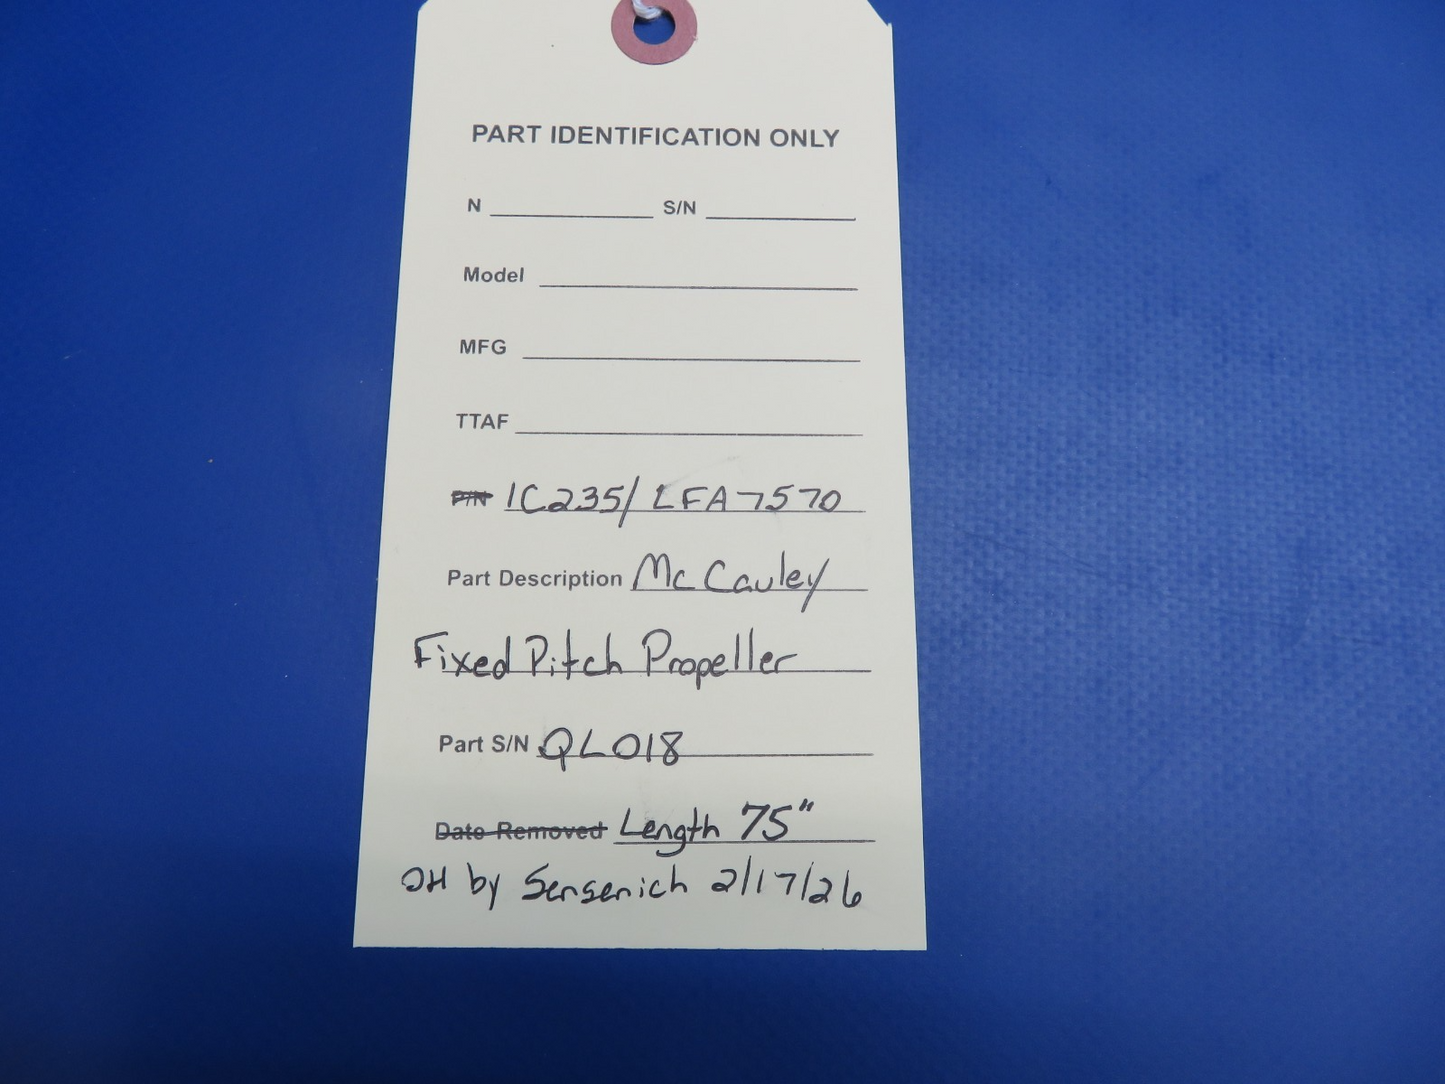 PART IDENTIFICATION ONLY
N S/N
Model
MFG
TTAF
P/N 1C235/LFA7570
Part Description McCauley
Fixed Pitch Propeller
Part S/N QL018
Date Removed Length 75"
OH by Sensenich 2/17/26